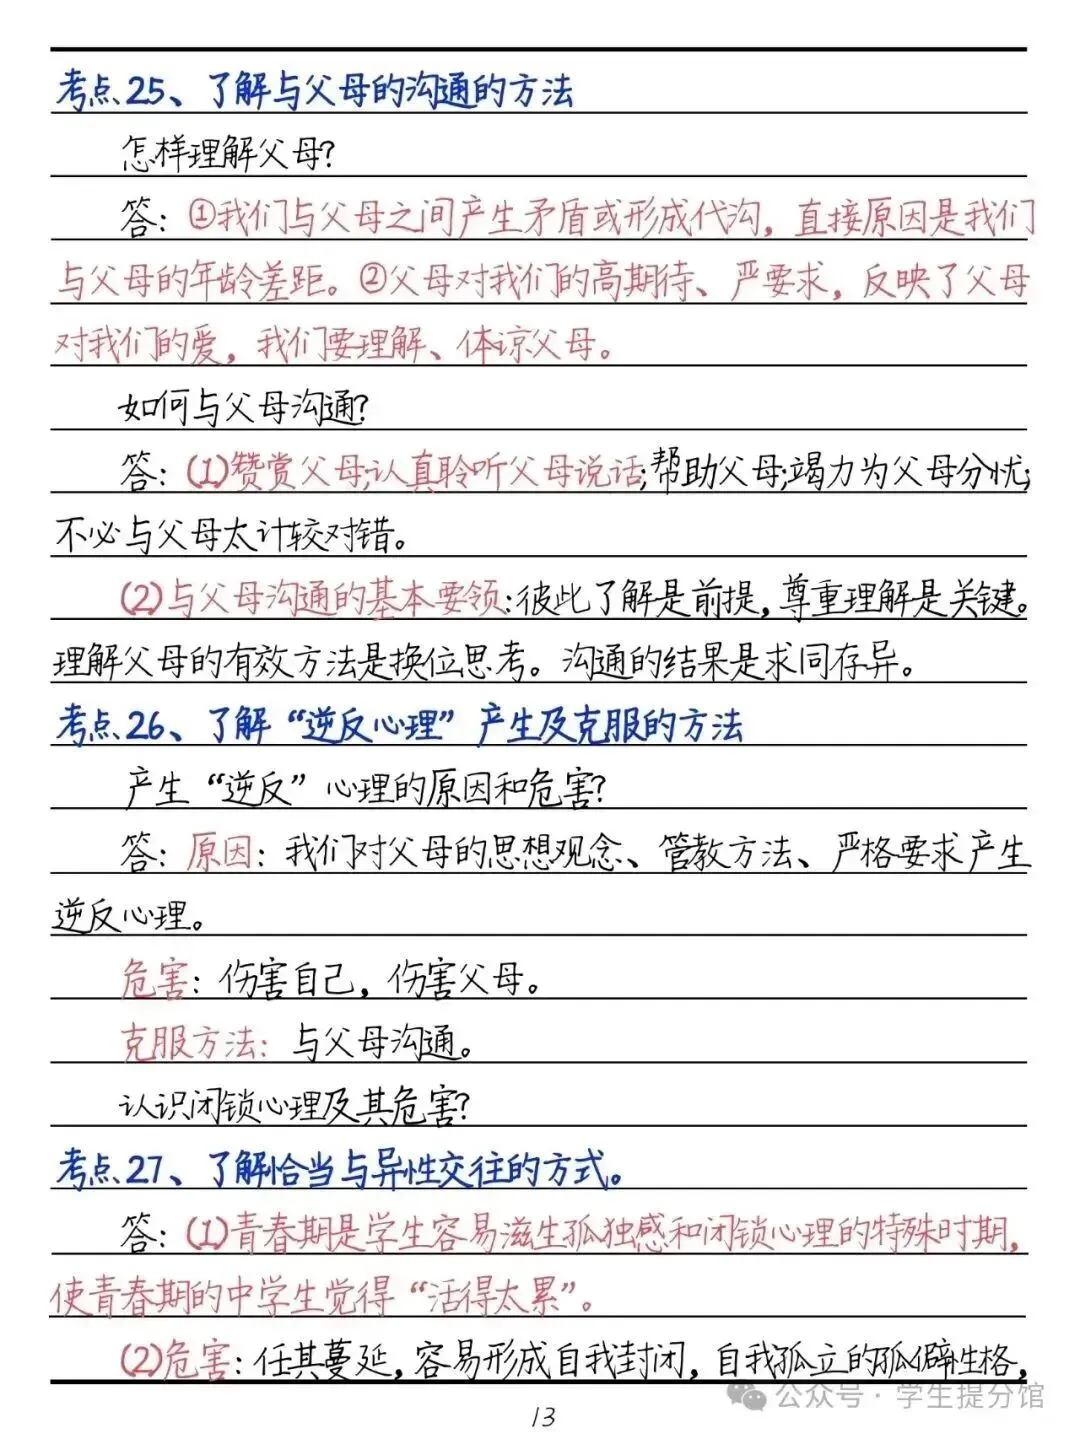 考点.25、了解与父母的沟通的方法
怎样理解父母?
答：①我们与父母之间产生矛盾或形成代沟，直接原因是我们
与父母的年龄差距。②父母对我们的高期待、严要求，反映了父母
对我们的爱，我们要理解、体谅父母。
如何与父母沟通?
答：(1)赞赏父母;认真聆听父母说话;帮助父母;竭力为父母分忧;
不必与父母太计较对错。
(2)与父母沟通的基本要领:彼此了解是前提,尊重理解是关键。
理解父母的有效方法是换位思考。沟通的结果是求同存异。
考点.26、了解“逆反心理”产生及克服的方法
产生“逆反”心理的原因和危害?
答：原因：我们对父母的思想观念、管教方法、严格要求产生
逆反心理。
危害：伤害自己，伤害父母。
克服方法：与父母沟通。
认识闭锁心理及其危害?
考点.27、了解恰当与异性交往的方式。
答：(1)青春期是学生容易滋生孤独感和闭锁心理的特殊时期,
使青春期的中学生觉得“活得太累”。
(2)危害:任其蔓延,容易形成自我封闭,自我孤立的孤僻性格,
公众号·学生提分馆
13